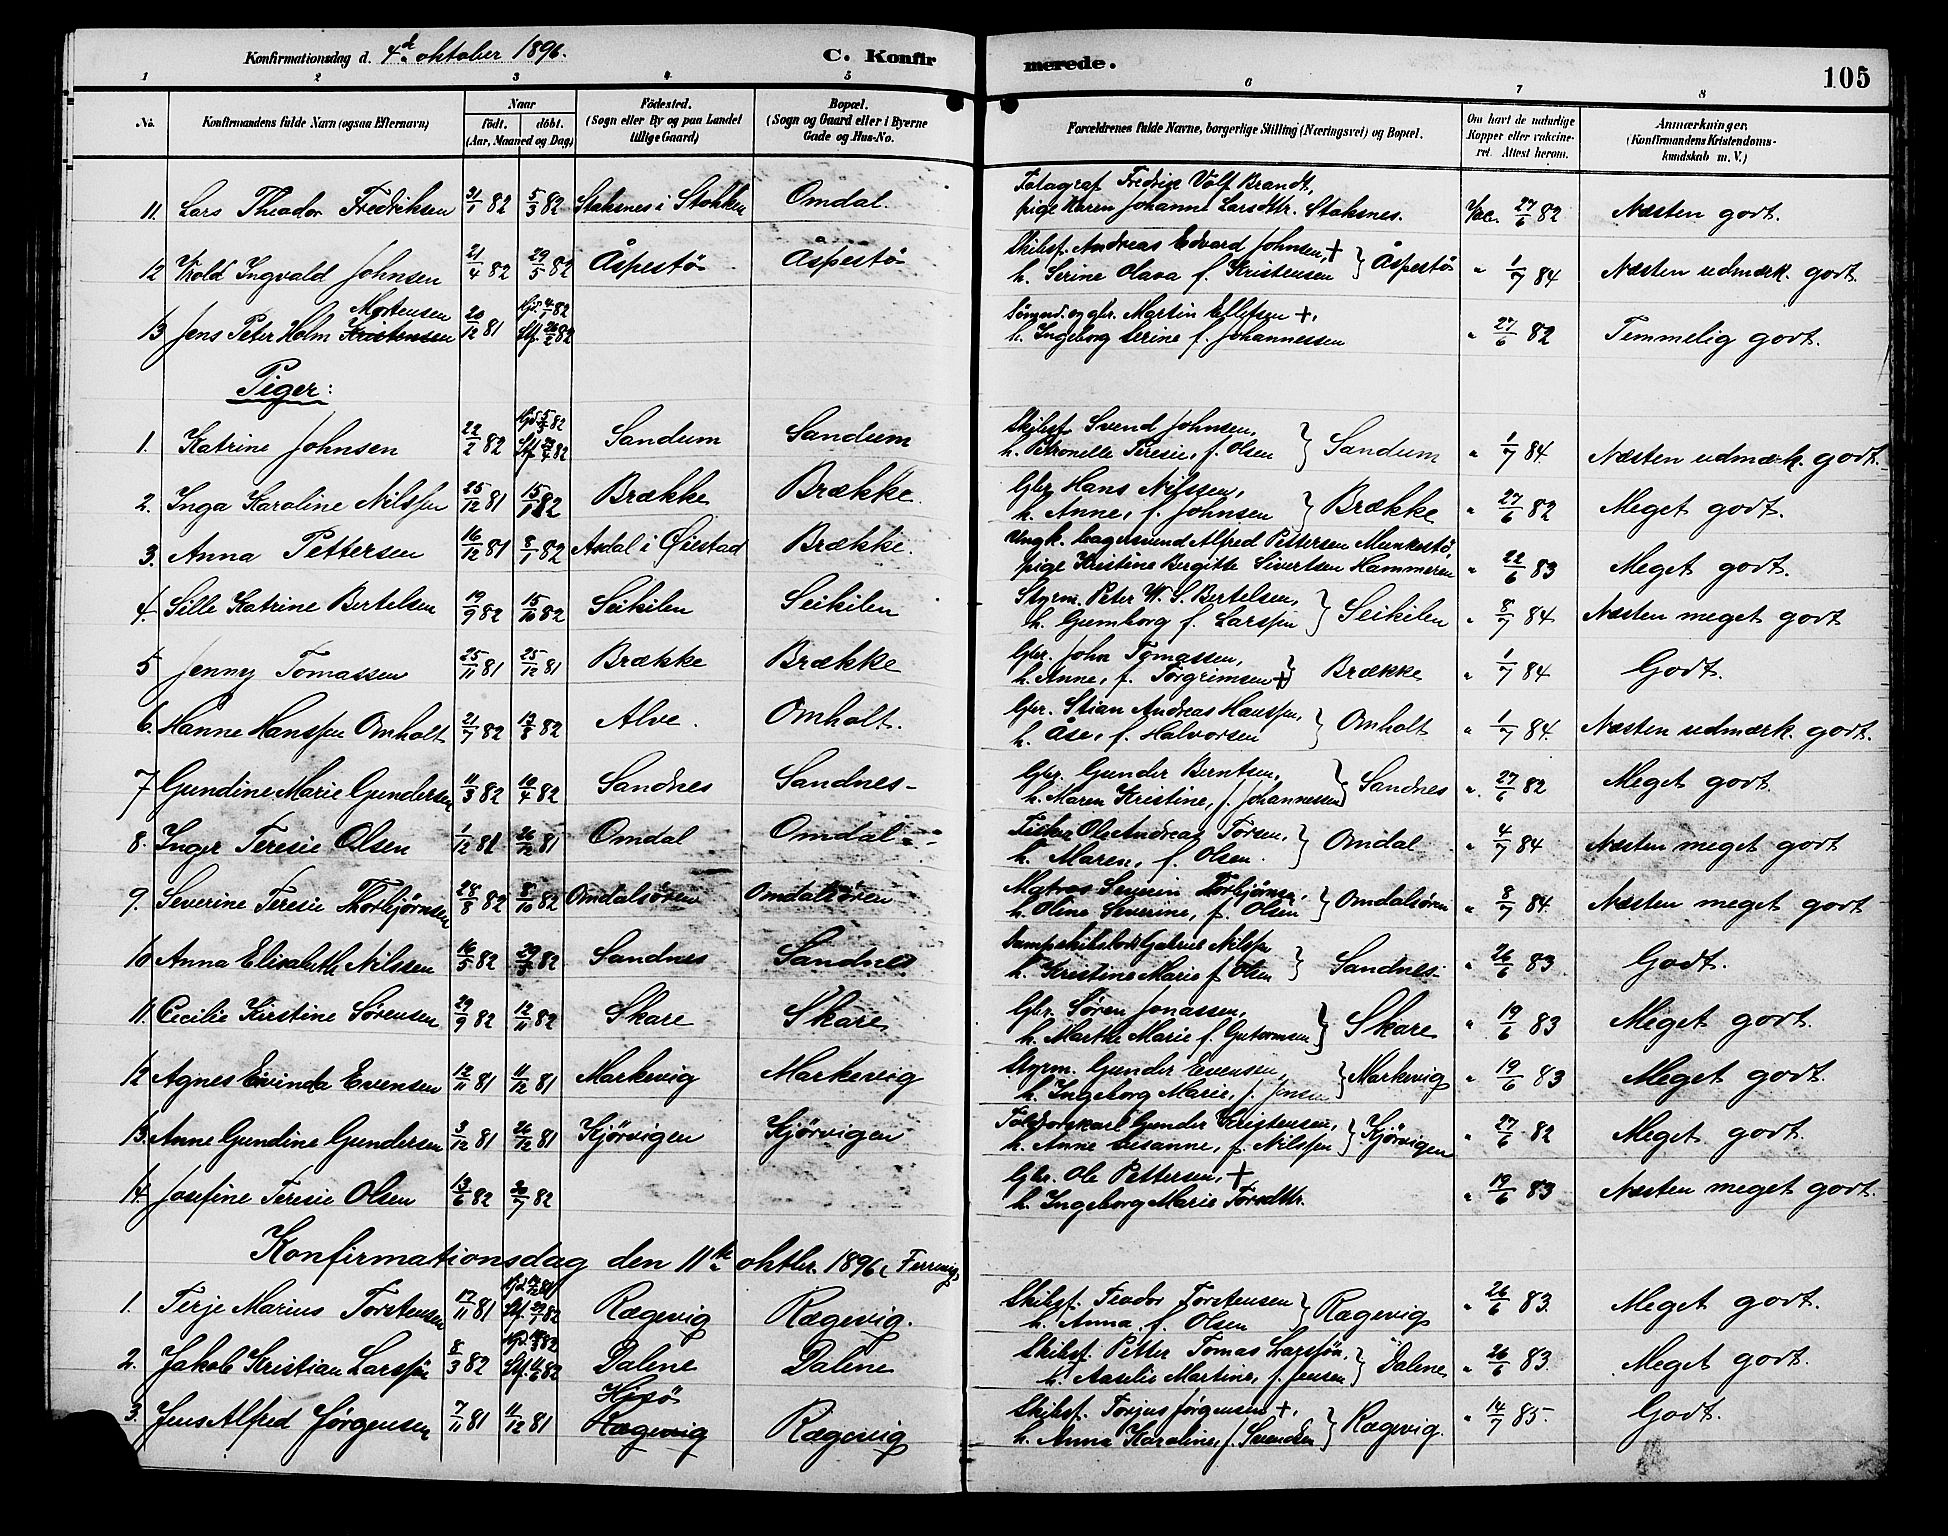 Konfirmationsdag d. 4d. oktober 1896. C. Konfirmerede. 105
1 2 3 4 5 6 7 8
No. Konfirmandens fulde Navn (ogsaa Efternavn) Naar födt. döbt. (Aar, Maaned og Dag) Födested. (Sogn eller By og paa Landet tillige Gaard) Bopæl. (Sogn og Gaard eller i Byerne Gade og Hus-No. Forældrenes fulde Navne, borgerlige Stilling (Næringsvei) og Bopæl. Om havt de naturlige Kopper eller vakcineret. Attest herom. Anmærkninger. (Konfirmandens Kristendomskundskab m. V.)
11. Lars Theodor Fredriksen 21/1 82 5/3 82 Staksnes i Stokken Omdal. Fotograf Fredrik Volf Brandt, pige Karen Johanne Larsdtr. Staksnes. Vac. 27/6 82 Næsten godt.
12 Ingvald Johnsen 21/4 82 29/5 82 Åspestö Åspestö Skibsf. Andreas Edvard Johnsen, + h. Serine Olava f. Kristensen } Åspestö " 1/7 84 Næsten udmærk. godt.
13 Jens Peter Holm Kristensen Mortensen 20/12 81 Hjd. 4/1 82 Stf. 26/2 82 Sömand. og gbr. Martin Ellefsen +, h. Ingeborg Serine f. Johannessen " 27/6 82 Temmelig godt.
Piger:
1. Katrine Johnsen 22/2 82 Hjd. 5/3 82 Stf. 82 Sandum Sandum Skibsf. Svend Johnsen, h. Petronelle Teresie, f. Olsen } Sandum " 1/7 84. Næsten udmærk. godt.
2. Inga Karoline Nilssen 25/12 81 15/1 82 Brække Brække. Gbr. Hans Nilssen, h. Anne, f. Johnsen } Brække " 27/6 82 Meget godt.
3. Anna Pettersen 16/12 81 8/1 82 Asdal i Öiestad Brække. Ungk. Alfred Pettersen Munkestö, pige Kristine Bergitte Sivertsen Hammeren " 22/6 83 Meget godt.
4. Sille Katrine Bertelsen 19/9 82 15/10 82 Seikilen Seikilen Styrm. Peter W. S. Bertelsen, h. Gumborg f. Larssen } Seikilen " 8/7 84 Næsten meget godt
5 Jenny Tomassen 25/11 81 25/12 81 Brække Brække Gbr. John Tomassen, h. Anne, f. Torgrimsen + } Brække " 1/7 84 Godt.
6. Hanne Hanssen Omholt 21/7 82 13/8 82 Alve. Omholt. Gbr. Stian Andreas Hanssen, h. Åse, f. Halvorsen } Omholt " 1/7 84. Næsten udmærk. godt.
7 Gundine Marie Gundersen 11/3 82 10/4 82 Sandnes Sandnes- Gbr. Gunder Berntsen, h. Maren Kristine, f. Johannessen } Sandnes " 27/6 82 Meget godt.
8. Inger Teresie Olsen 1/12 81 26/12 81 Omdal Omdal Fisker Ole Andreas Torsen, h. Maren, f. Olsen. } Omdal " 4/7 84 Næsten meget godt
9. Severine Teresie Thorbjørnsen 28/8 82 8/10 82 Omdalsören Omdalsören Matros Severin Torbjørnsen, h. Oline Severine, f. Olsen } Omdalsören " 8/7 84. Næsten meget godt
10 Anna Elisabeth Nilssen 16/5 82 29/5 82 Sandnes Sandnes Gabriel Nilssen h. Kristine Marie f. Olsen } Sandnes. " 26/6 83. Godt.
11. Cecilie Kirstine Sörensen 29/9 82 12/11 82 Skare Skare Gbr. Sören Jonassen, h. Marthe Marie f. Guttormsen } Skare " 19/6 83 Meget godt.
12 Agnes Evinda Evensen 12/11 81 11/12 81 Markevig Markevig Styrm. Gunder Evensen, h. Ingeborg Marie, f. Jensen } Markevig " 19/6 83 Meget godt.
13. Anne Gundine Gundersen 3/12 81 26/12 81 Kjörvigen Kjörvigen Gunder Kristensen, h. Anne Susanne, f. Nilssen } Kjörvigen " 27/6 82 Meget godt.
14. Josefine Teresie Olsen 13/6 82 30/7 82 Gbr. Ole Pettersen, + h. Ingeborg Marie Torsdtr. " 19/6 83 Næsten meget godt.
Konfirmationsdag den 11te oktbr. 1896
1. Terje Marius Torstensen 17/11 81 Hjd. 81 Stf. 82 Rægevig Rægevig. Skibsf. Teodor Torstensen h. Anna, f. Olsen } Rægevig " 26/6 83. Meget godt.
2. Jakob Kristian Larssön 8/3 82 Hjd. 82 Stf. 4/6 82 Dalene Dalene Skibsf. Petter Tomas Larssön, h. Aaselie Martine, f. Jensen } Dalene " 26/6 83. Meget godt.
3. Jens Alfred Jörgensen 7/11 81 11/12 81 Hisö Rægevig Rægevig Skibsf. Torjus Jörgensen +, h. Anna Karoline, f. Svendsen } Rægevig. " 14/7 85. Godt.